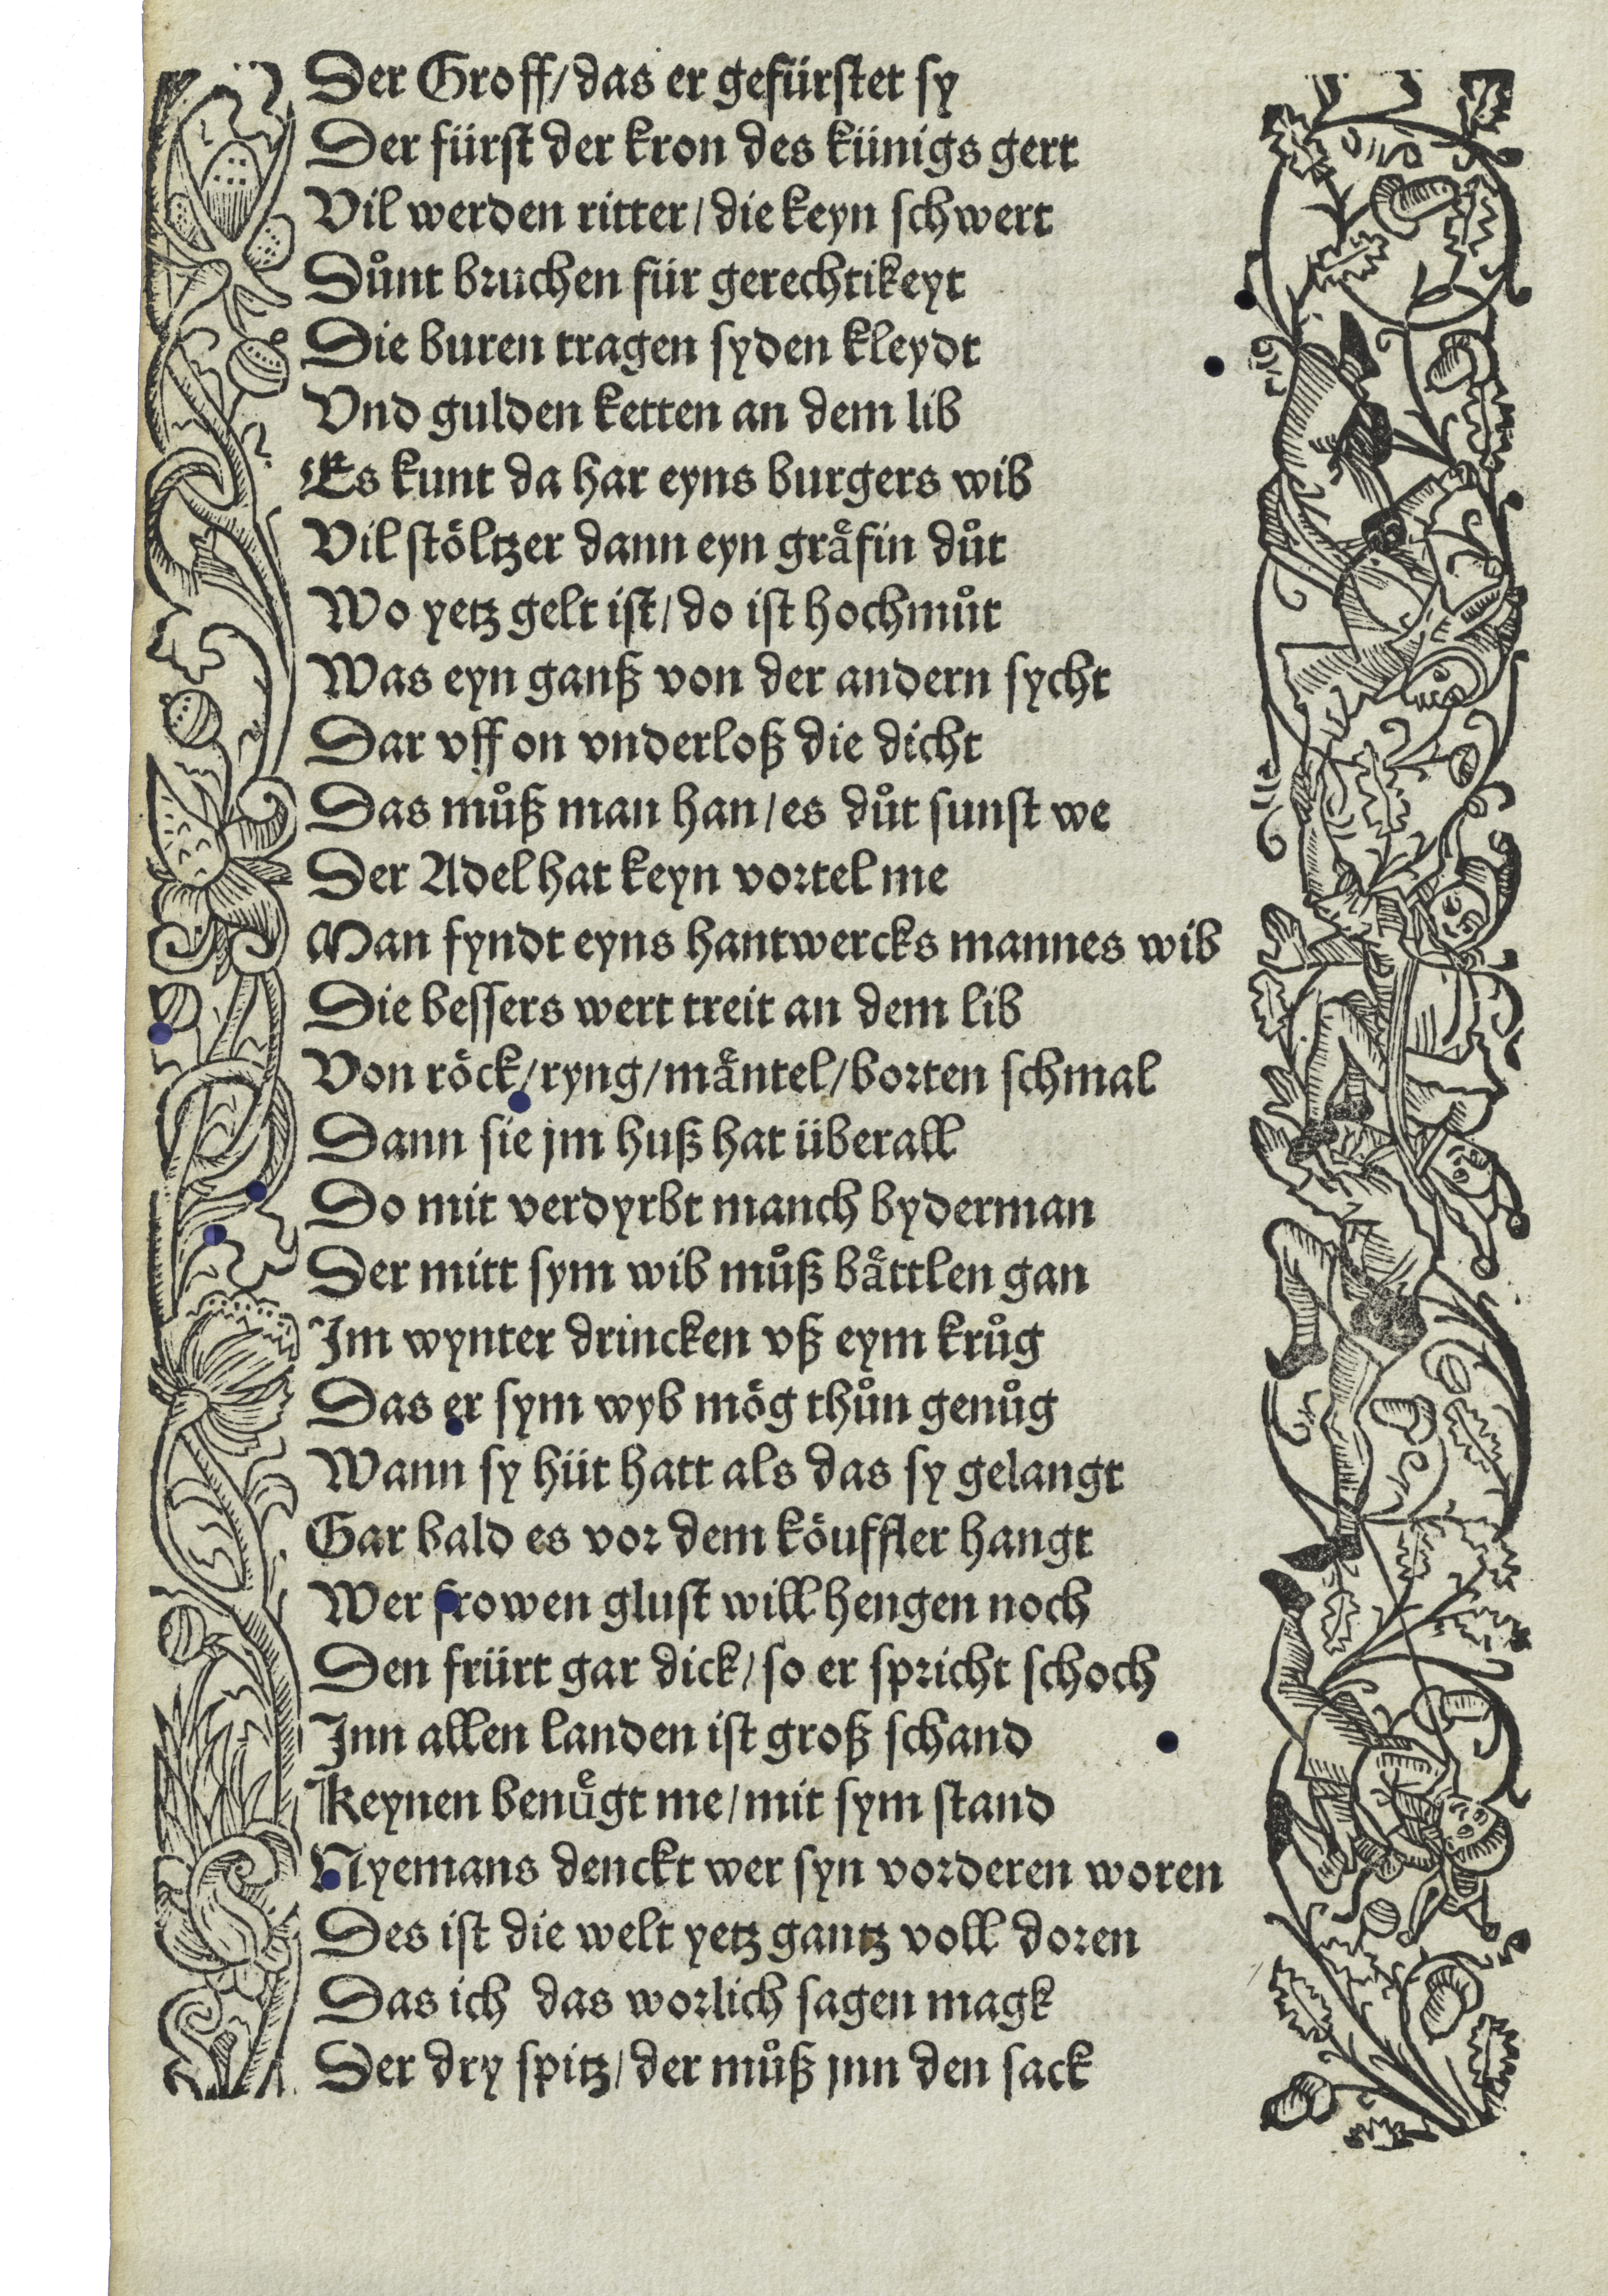 Der Groff/das er gefürstet sy
Der fürst der kron des künigs gert
Vil werden ritter/die keyn schwert
Dünt bruchen für gerechtikeyt
Die buren tragen syden kleydt
Vnd gulden ketten an dem lib
Es kunt da har eyns burgers wib
Vil stöltzer dann eyn gräfin důt
Wo yetz gelt ist/do ist hochmůt
Was eyn ganß von der andern sycht
Dar vff on vnderloß die dicht
Das můß man han/es důt sunst we
Der Adel hat keyn vortel me
Man fyndt eyns hantwercks mannes wib
Die bessers wert treit an dem lib
Von röck/ryng/mäntel/borten schmal
Dann sie jm huß hat überall
Do mit verdyrbt manch byderman
Der mitt sym wib můß bättlen gan
Im wynter drincken vß eym krůg
Das er sym wyb mög thůn genůg
Wann sy hüt hatt als das sy gelangt
Gar bald es vor dem köuffler hangt
Wer frowen glust will hengen noch
Den frürt gar dick/so er spricht schoch
Inn allen landen ist groß schand
Keynen benügt me/mit sym stand
Nyemans denckt wer syn vorderen woren
Des ist die welt yetz gantz voll doren
Das ich das worlich sagen magk
Der dry spitz/der můß jnn den sack